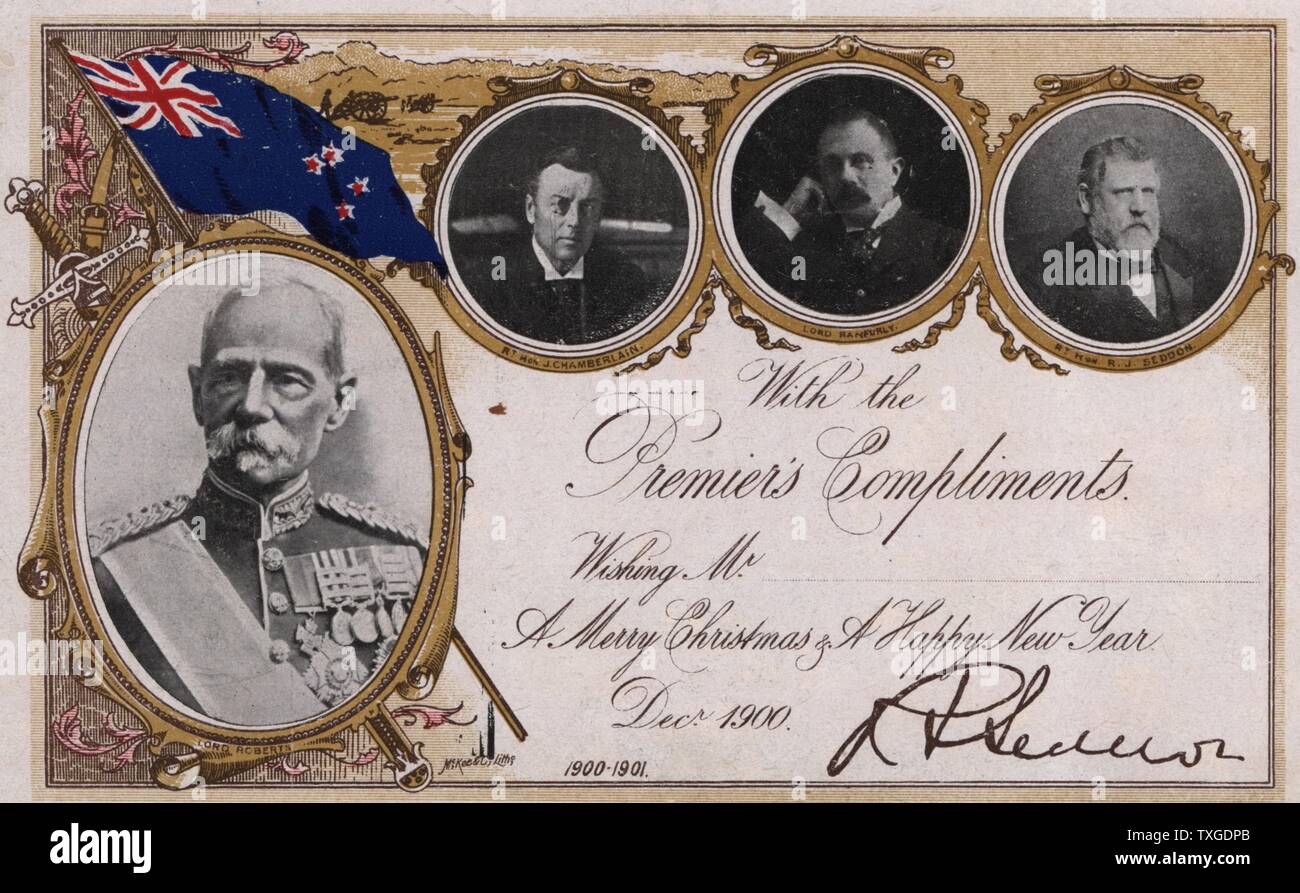 Rt Hon J. CHAMBERLAIN.
LORD RANFURLY.
Rt Hon R. J. SEDDON.
LORD ROBERTS
With the
Premier's Compliments.
Wishing Mr
A Merry Christmas & A Happy New Year.
Decr 1900.
R J Seddon
McKee & Co Litho
1900-1901.
a
alamy
Image ID: TXGDPB
www.alamy.com